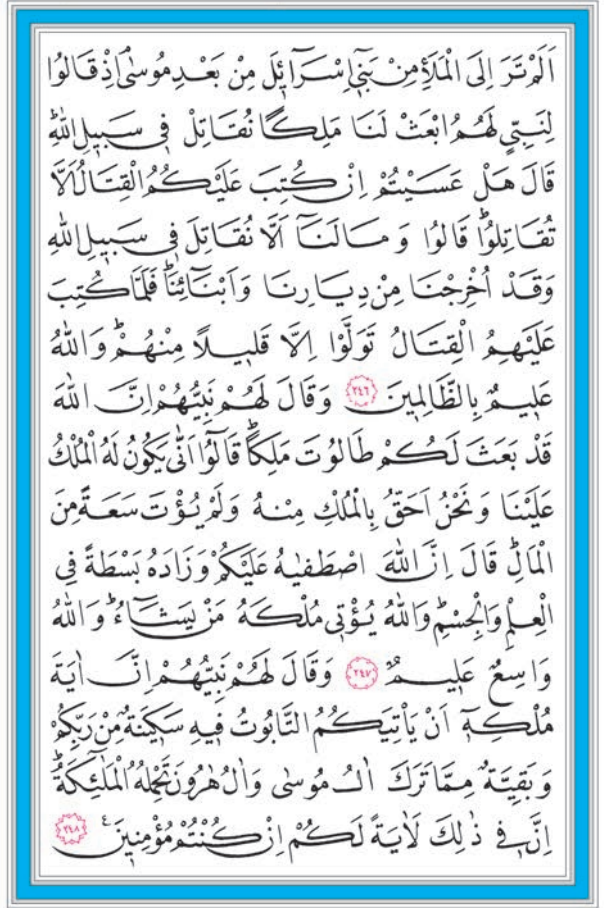 اَلَمْ تَرَ اِلَى الْمَلَاِ مِنْ بَنٖٓي اِسْرَٓائٖلَ مِنْ بَعْدِ مُوسٰىۘ اِذْ قَالُوا
لِنَبِيٍّ لَهُمُ ابْعَثْ لَنَا مَلِكًا نُقَاتِلْ فٖي سَبٖيلِ اللّٰهِؕ
قَالَ هَلْ عَسَيْتُمْ اِنْ كُتِبَ عَلَيْكُمُ الْقِتَالُ اَلَّا
تُقَاتِلُواؕ قَالُوا وَمَا لَنَٓا اَلَّا نُقَاتِلَ فٖي سَبٖيلِ اللّٰهِ
وَقَدْ اُخْرِجْنَا مِنْ دِيَارِنَا وَاَبْنَٓائِنَاؕ فَلَمَّا كُتِبَ
عَلَيْهِمُ الْقِتَالُ تَوَلَّوْا اِلَّا قَلٖيلًا مِنْهُمْؕ وَاللّٰهُ
عَلٖيمٌ بِالظَّالِمٖينَ ﴿٢٤٦﴾ وَقَالَ لَهُمْ نَبِيُّهُمْ اِنَّ اللّٰهَ
قَدْ بَعَثَ لَكُمْ طَالُوتَ مَلِكًاؕ قَالُٓوا اَنّٰى يَكُونُ لَهُ الْمُلْكُ
عَلَيْنَا وَنَحْنُ اَحَقُّ بِالْمُلْكِ مِنْهُ وَلَمْ يُؤْتَ سَعَةً مِنَ
الْمَالِؕ قَالَ اِنَّ اللّٰهَ اصْطَفٰيهُ عَلَيْكُمْ وَزَادَهُ بَسْطَةً فِي
الْعِلْمِ وَالْجِسْمِؕ وَاللّٰهُ يُؤْتٖي مُلْكَهُ مَنْ يَشَٓاءُؕ وَاللّٰهُ
وَاسِعٌ عَلٖيمٌ ﴿٢٤٧﴾ وَقَالَ لَهُمْ نَبِيُّهُمْ اِنَّ اٰيَةَ
مُلْكِهٖٓ اَنْ يَاْتِيَكُمُ التَّابُوتُ فٖيهِ سَكٖينَةٌ مِنْ رَبِّكُمْ
وَبَقِيَّةٌ مِمَّا تَرَكَ اٰلُ مُوسٰى وَاٰلُ هٰرُونَ تَحْمِلُهُ الْمَلٰٓئِكَةُؕ
اِنَّ فٖي ذٰلِكَ لَاٰيَةً لَكُمْ اِنْ كُنْتُمْ مُؤْمِنٖينَ ﴿٢٤٨﴾